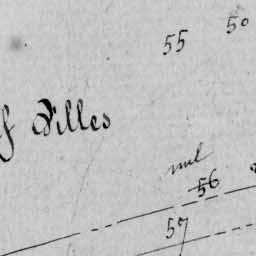 50
55
f Dilles
nul
56
57